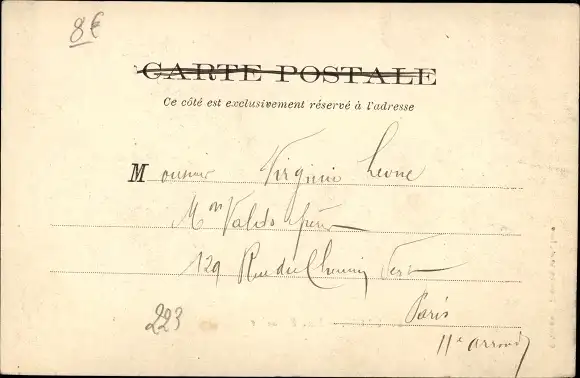 8€
CARTE POSTALE
Ce côté est exclusivement réservé à l'adresse
Monsieur Virginio Leone
Mon Valdo
129 Rue du Chemin Vert
Paris
11e arrond
223